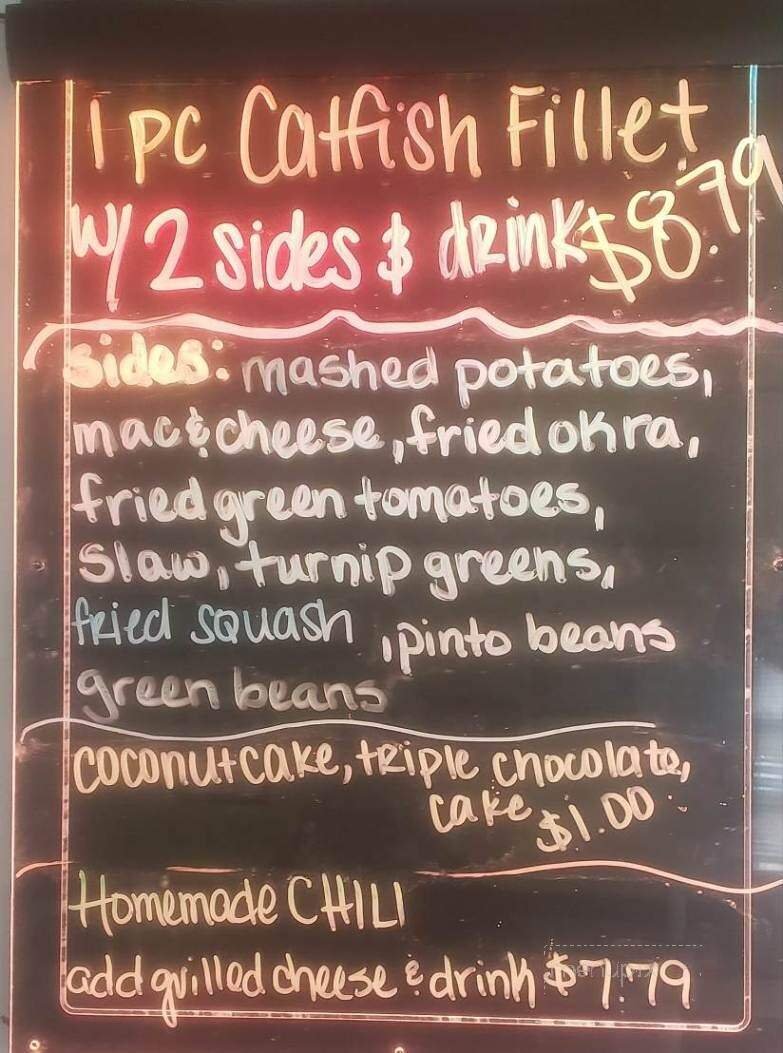 1 PC Catfish Fillet
w/ 2 sides & drink $8.79
sides: mashed potatoes,
mac & cheese, fried okra,
fried green tomatoes,
slaw, turnip greens,
fried squash , pinto beans
green beans
coconut cake, triple chocolate,
cake $1.00
Homemade CHILI
add grilled cheese & drink $7.79